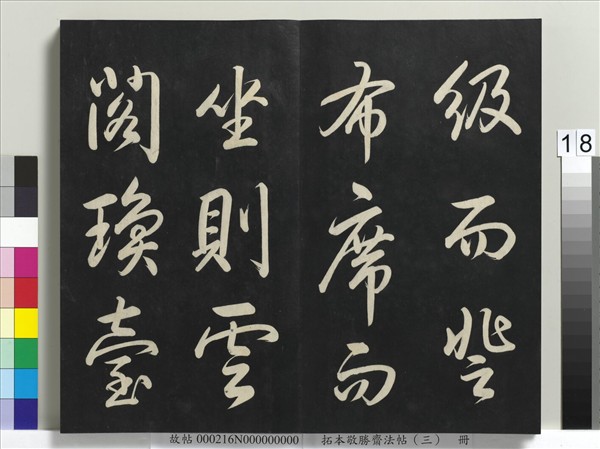 級而登
布席而
坐則雲
閣瓊臺
18
故帖 000216N000000000 拓本敬勝齋法帖(三) 冊